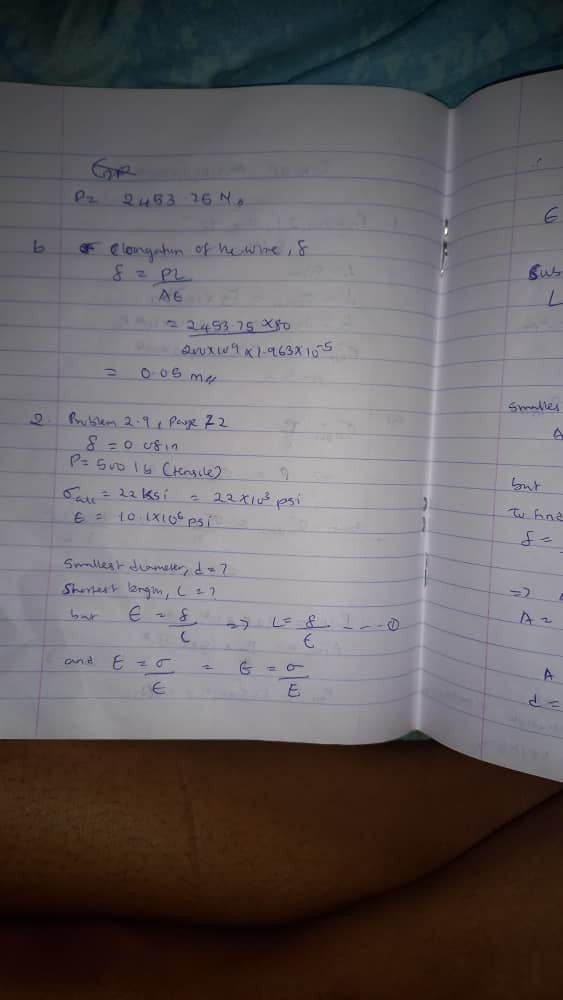 P= 2453.75 N.
b Elongation of the wire, δ
δ = PL
AE
= 2453.75 × 80
200×10⁹ × 1.963×10⁻⁵
= 0.05 m
2. Problem 2.9, Page 72
δ = 0.08in
P= 500 lb (tensile)
σall = 22 ksi = 22×10³ psi
E = 10.1×10⁶ psi
Smallest diameter, d = ?
Shortest length, L = ?
but ϵ = δ/L => L = δ/ϵ --- ①
and E = σ/ϵ = ϵ = σ/E
E
Sub
L
Smalles
A
but
To find
δ =
=>
A =
A
d =